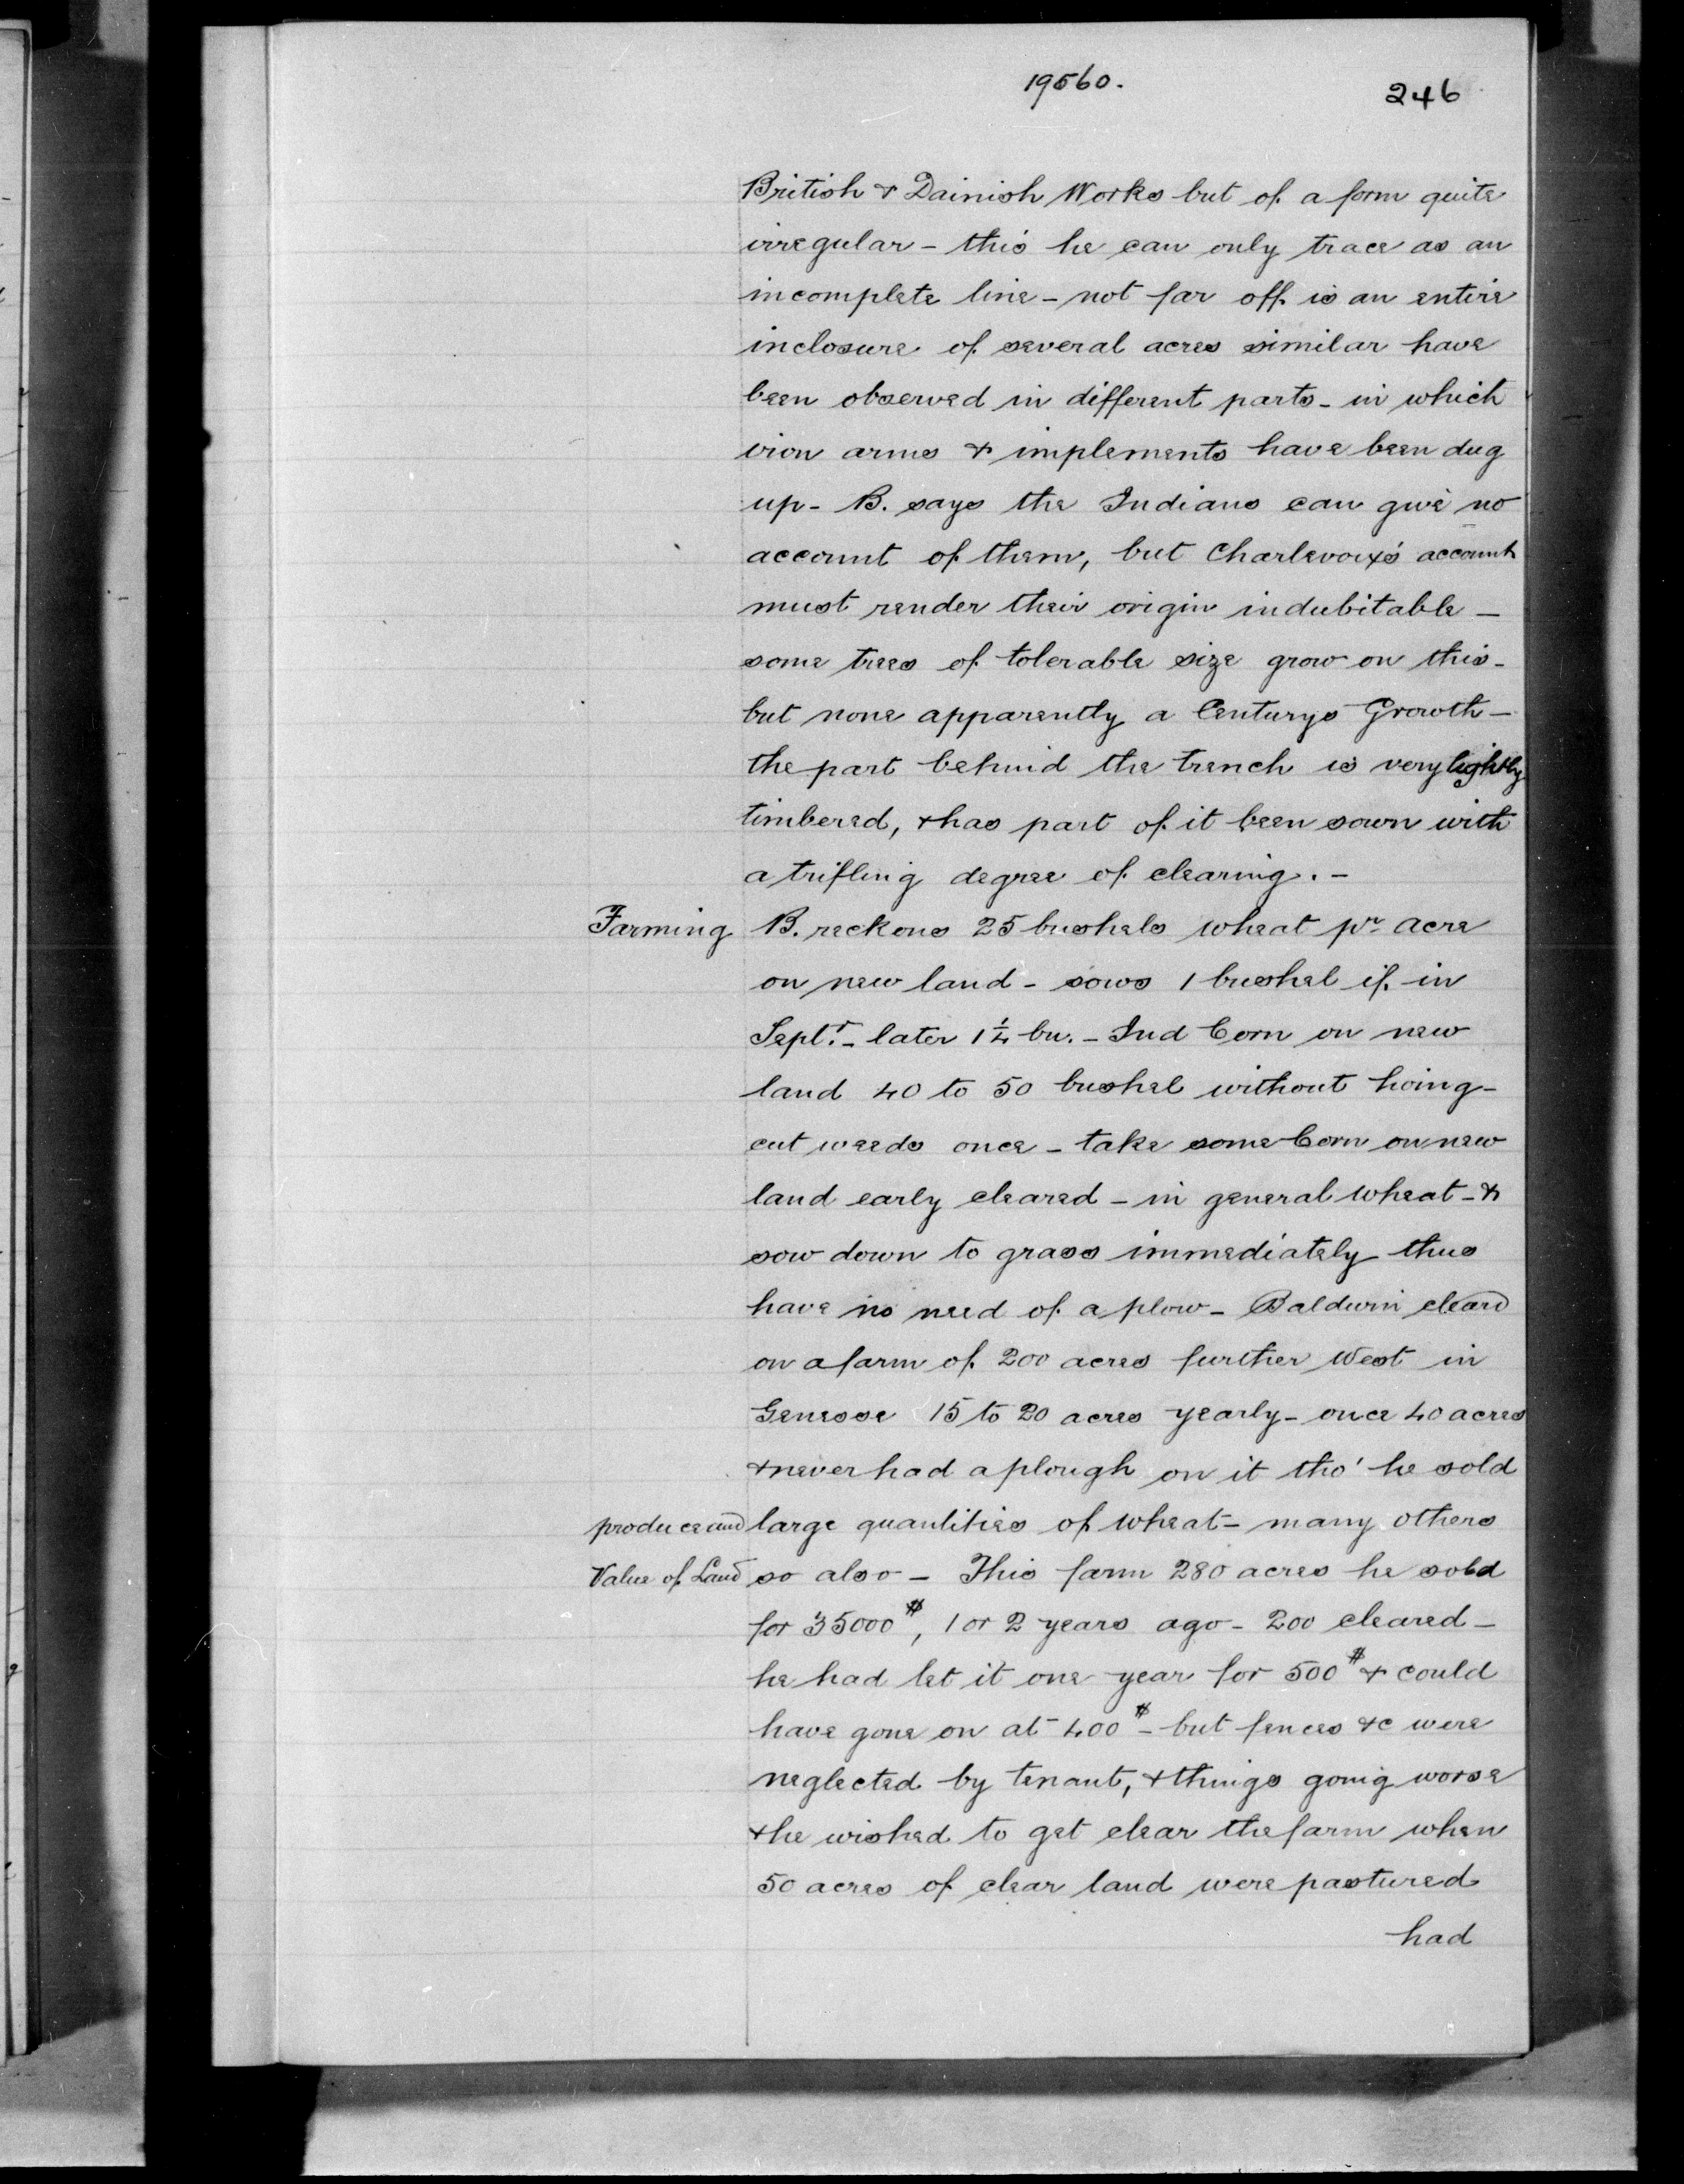 19560.
246
British & Dainish Works but of a form quite
irregular - this he can only trace as an
incomplete line - not far off is an entire
inclosure of several acres similar have
been observed in different parts - in which
iron arms & implements have been dug
up - B. says the Indians can give no
account of them, but Charlevoix's account
must render their origin indubitable -
some trees of tolerable size grow on this -
but none apparently a Centurys Growth -
the part behind the trench is very lightly
timbered, & has part of it been sown with
a trifling degree of clearing. -
Farming B. reckons 25 bushels wheat pr acre
on new land - sows 1 bushel if in
Septr. - later 1 1/4 bu. - Ind Corn on new
land 40 to 50 bushel without hoing -
cut weeds once - take some Corn on new
land early cleared - in general wheat - &
sow down to grass immediately thus
have no need of a plow - Baldwin cleard
on a farm of 200 acres further West in
Genesse 15 to 20 acres yearly - once 40 acres
& never had a plough on it tho' he sold
produce and large quantities of wheat - many others
Value of Land so also - This farm 280 acres he sold
for 35000 $, 1 or 2 years ago - 200 cleared -
he had let it one year for 500 $ & could
have gone on at 400 $ - but fences &c were
neglected by tenant, & things going worse
& he wished to get clear the farm when
50 acres of clear land were pastured
had